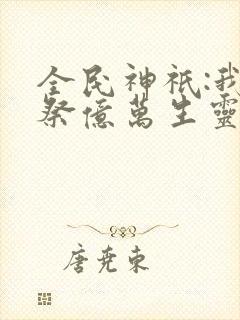 全民神祇:我
祭億萬生靈
唐尭東